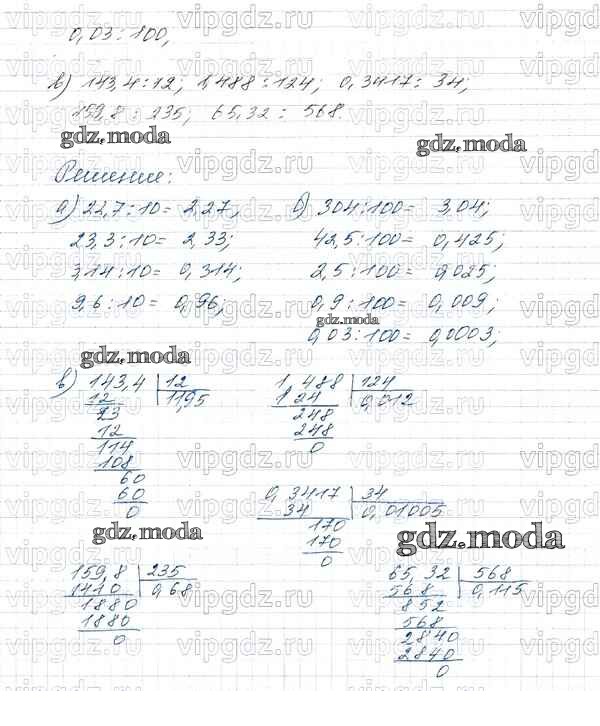 0,03:100,
в) 143,4:12; 1,488:124; 0,3417:34;
159,8:235; 65,32:568.
gdz.moda gdz.moda
Решение:
а) 22,7:10= 2,27; б) 304:100= 3,04;
23,3:10= 2,33; 42,5:100= 0,425;
3,14:10= 0,314; 2,5:100= 0,025;
9,6:10= 0,96; 0,9:100= 0,009;
gdz.moda
0,03:100= 0,0003;
gdz.moda
в) 143,4 12 1,488 124
12 11,95 124 0,012
23 248
12 248
114 0
108
60 0,3417 34
60 34 0,01005
0 170
gdz.moda gdz.moda
170
0
159,8 235 65,32 568
1410 0,68 568 0,115
1880 852
1880 568
0 2840
2840
0
vipgdz.ru